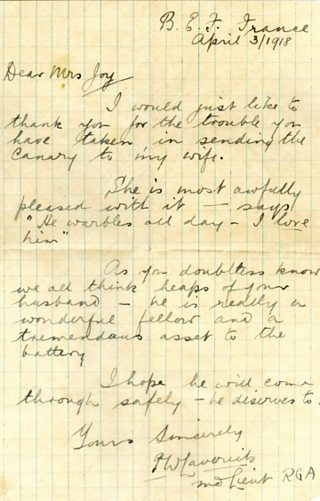 B. E. F. France
April 3/1918
Dear Mrs Joy
I would just like to
thank you for the trouble you
have taken in sending the
canary to my wife.
She is most awfully
pleased with it — says
"He warbles all day - I love
him"
As you doubtless know
we all think heaps of your
husband - he is really a
wonderful fellow and a
tremendous asset to the
battery
I hope he will come
through safely - he deserves to.
Yours Sincerely
Lieut RGA